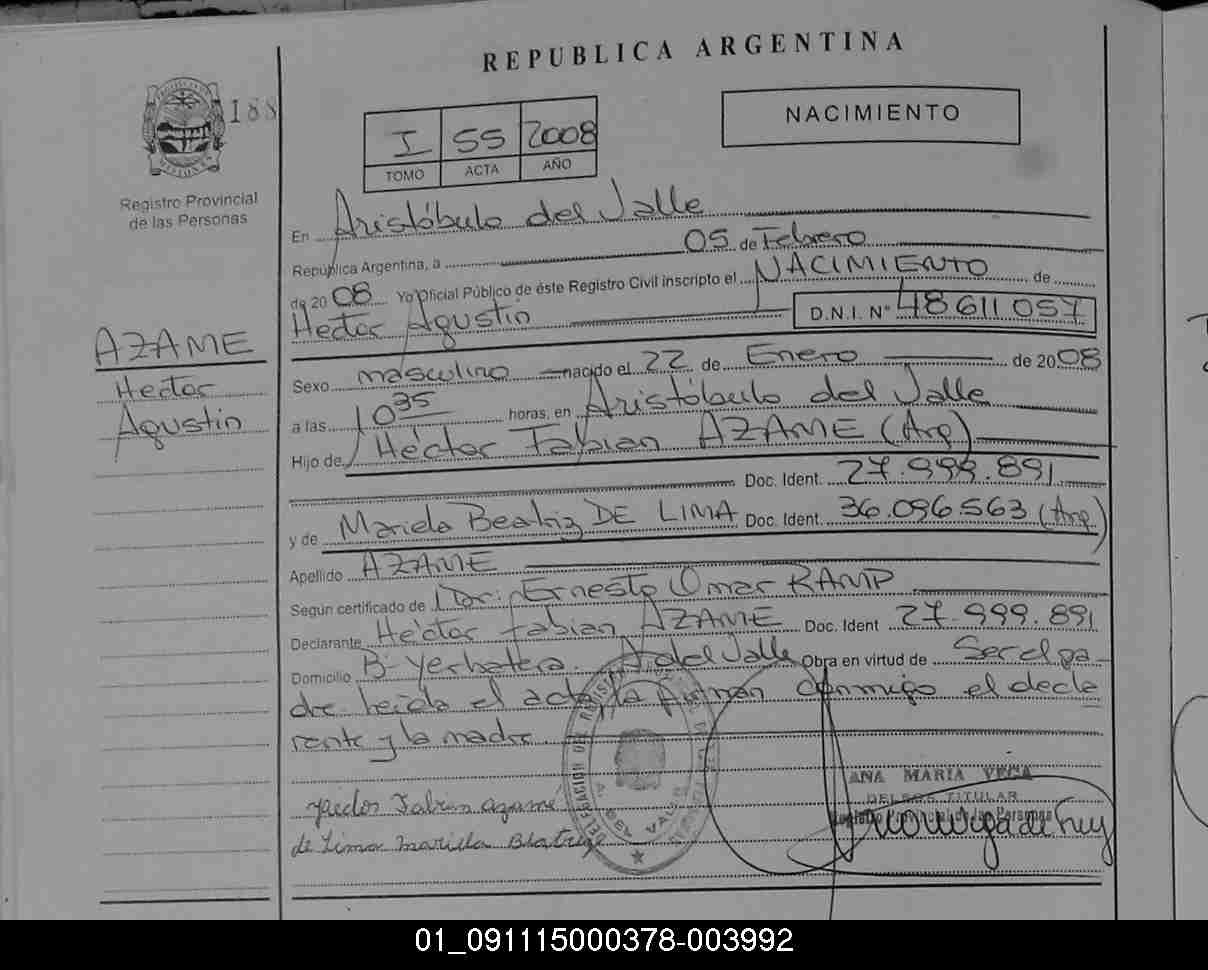 REPUBLICA ARGENTINA
188
NACIMIENTO
I 55 2008
TOMO ACTA AÑO
Registro Provincial
de las Personas
En Aristóbulo del Valle
República Argentina, a 05 de Febrero
de 2008 Yo Oficial Público de éste Registro Civil inscripto el NACIMIENTO de
Hector Agustin D.N.I. N° 48611057
AZAME
Hector
Agustin
Sexo masculino nacido el 22 de Enero de 2008
a las 10 35 horas, en Aristóbulo del Valle
Hijo de Héctor Fabian AZAME (Arg)
Doc. Ident. 27.999.891
y de Mariela Beatriz DE LIMA Doc. Ident. 36.096.563 (Arg)
Apellido AZAME
Según certificado de Dr: Ernesto Omar RAMP
Declarante Héctor Fabian AZAME Doc. Ident 27.999.891
Domicilio B° Yerbatero. A. del Valle Obra en virtud de Ser el pa
dre leida el acta, la firman conmigo el decla
rante y la madre
ANA MARIA VEGA
DELEG. TITULAR
Registro Provincial de las Personas
Hector Fabian azame
de Lima Mariela Beatriz
01_091115000378-003992